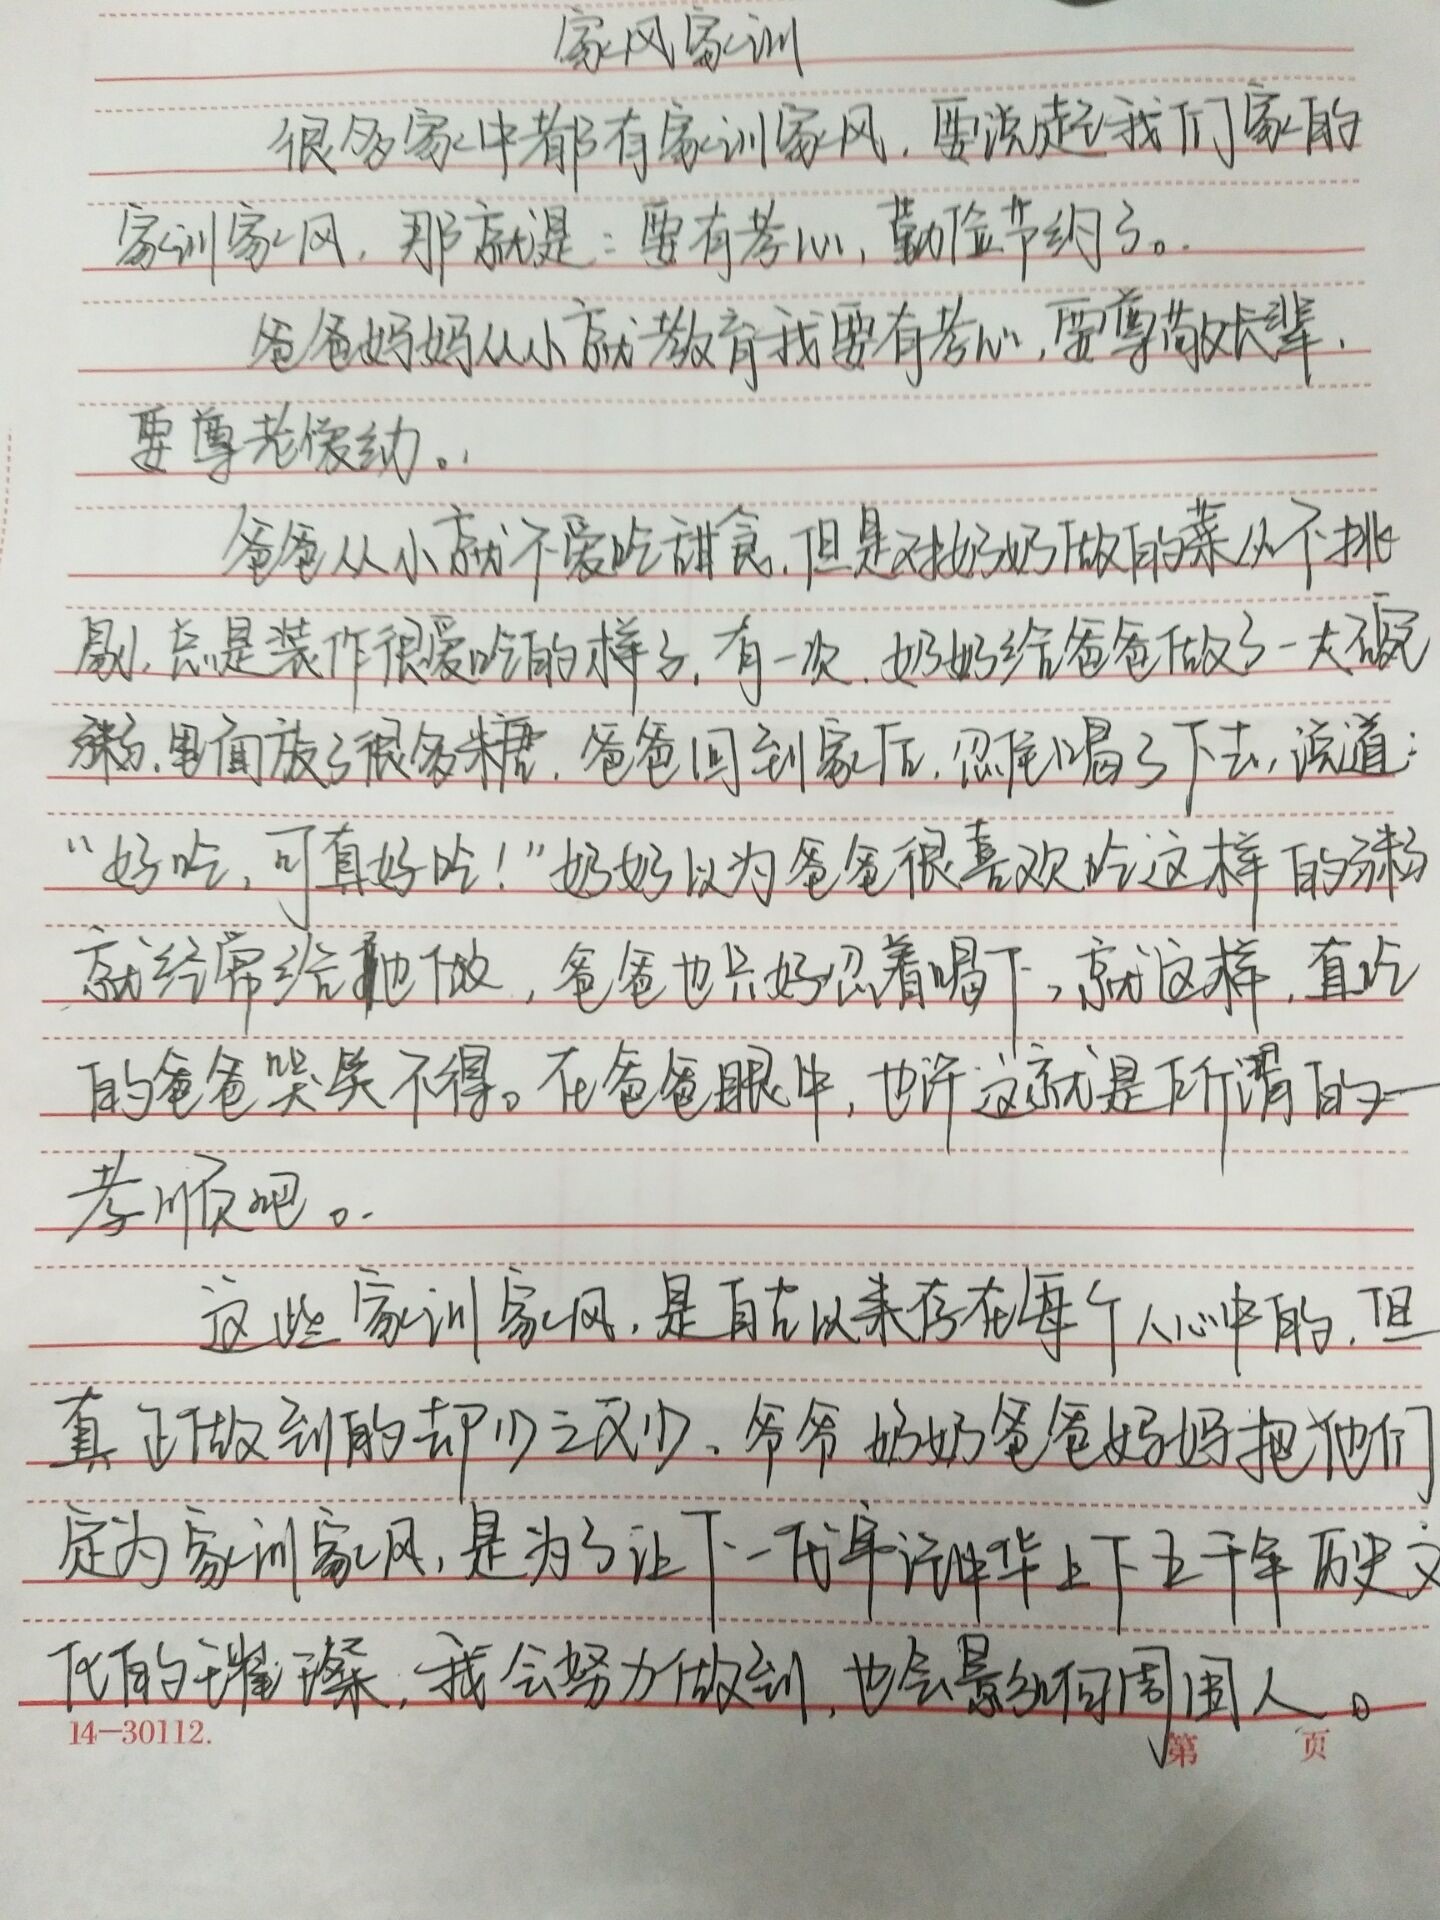 家风家训
很多家中都有家训家风，要说起我们家的
家训家风，那就是：要有孝心，勤俭节约了。
爸爸妈妈从小就教育我要有孝心，要尊敬长辈，
要尊老爱幼。
爸爸从小就不爱吃甜食，但是对奶奶做的菜从不挑
剔，总是装作很爱吃的样子，有一次，奶奶给爸爸做了一大碗
粥，里面放了很多糖，爸爸回到家后，忍住喝了下去，说道：
“好吃，可真好吃！”奶奶以为爸爸很喜欢吃这样的粥
就经常给他做，爸爸也只好忍着喝下，就这样，直吃
的爸爸哭笑不得。在爸爸眼中，也许这就是所谓的
孝顺吧。
这些家训家风，是自古以来存在每个人心中的，但
真正做到的却少之又少。爷爷奶奶爸爸妈妈把他们
定为家训家风，是为了让下一代牢记中华上下五千年历史文
化的璀璨，我会努力做到，也会影响周围人。
14—30112.
第 页